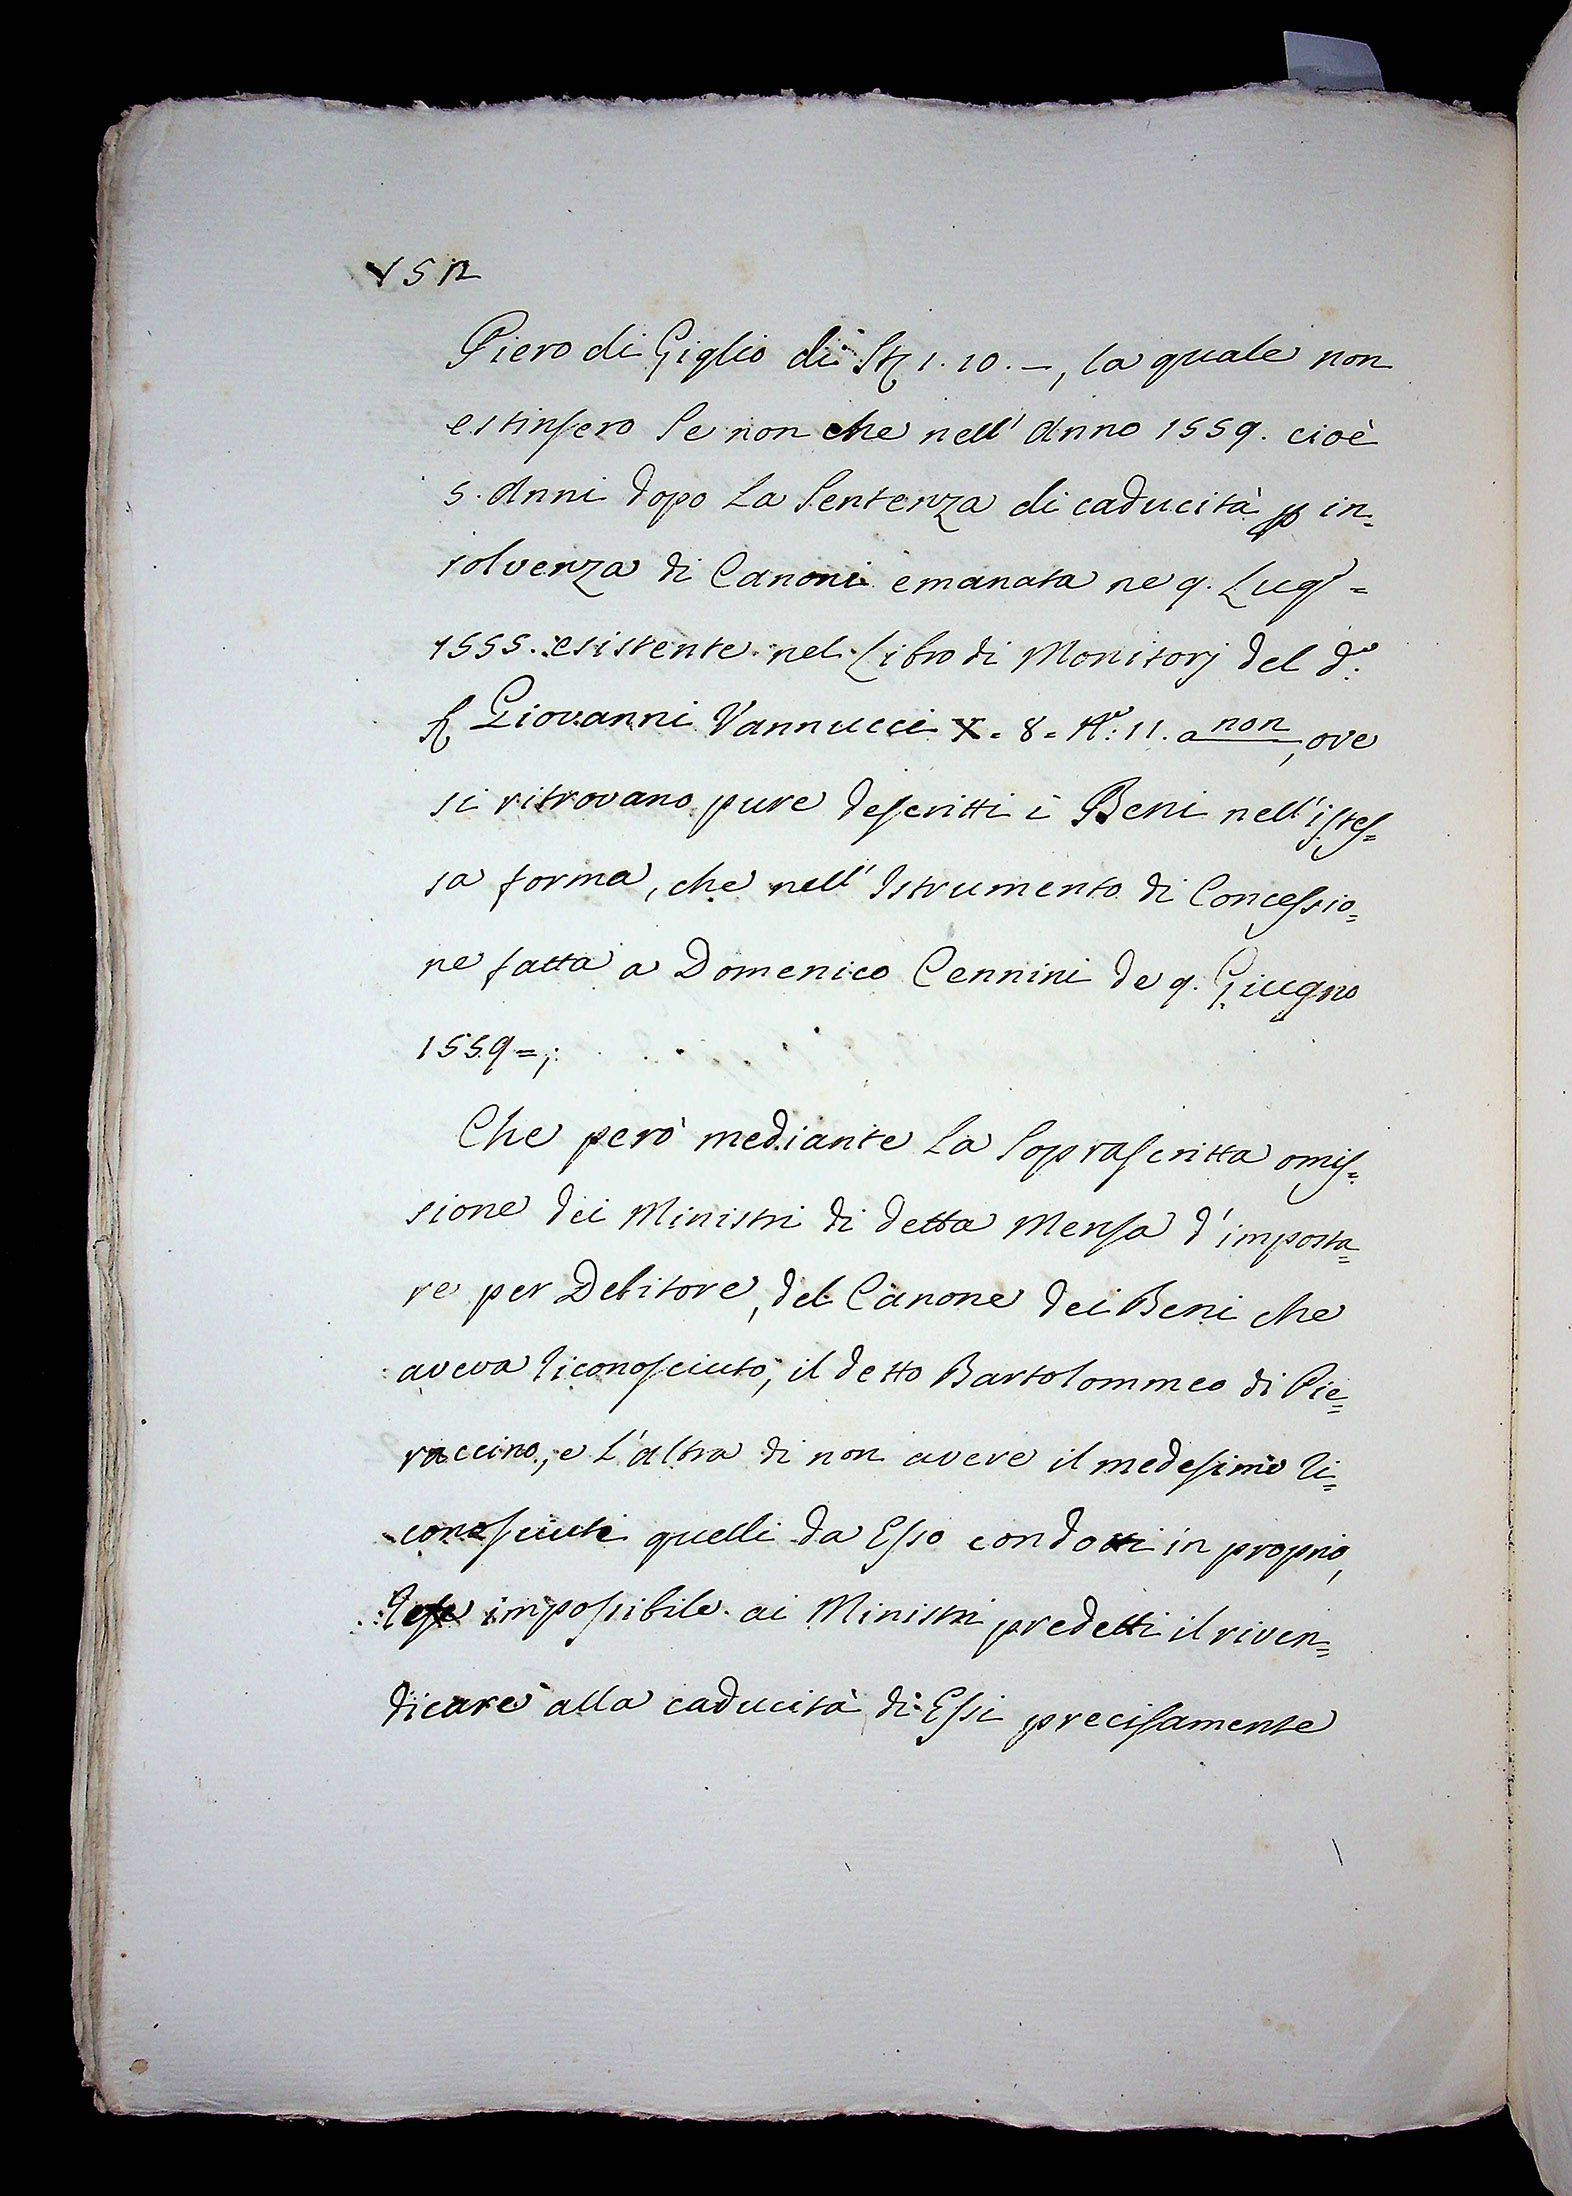 152
Piero di Giglio di St 1. 10. –, la quale non
estinsero se non che nell' Anno 1559. cioè
5. Anni dopo la Sentenza di caducità p in=
solvenza di Canoni emanata ne 9. Lugo =
1555. esistente nel Libro di Monitorj del do:
Giovanni Vannucci X. 8 = No: 11. a non, ove
si ritrovano pure descritti i Beni nell'istes=
sa forma, che nell' Istrumento di Concessio=
ne fatta a Domenico Cennini de 9. Giugno
1559 =;
Che però mediante la soprascritta omis=
sione dei Ministri di detta Mensa d'imposta=
re per Debitore, del Canone dei Beni che
aveva riconosciuto, il detto Bartolommeo di Pie=
raccino, e l'altra di non avere il medesimo ri=
conosciuti quelli da Esso condotti in proprio,
Rese impossibile ai Ministri predetti il riven=
dicare alla caducità di Essi precisamente